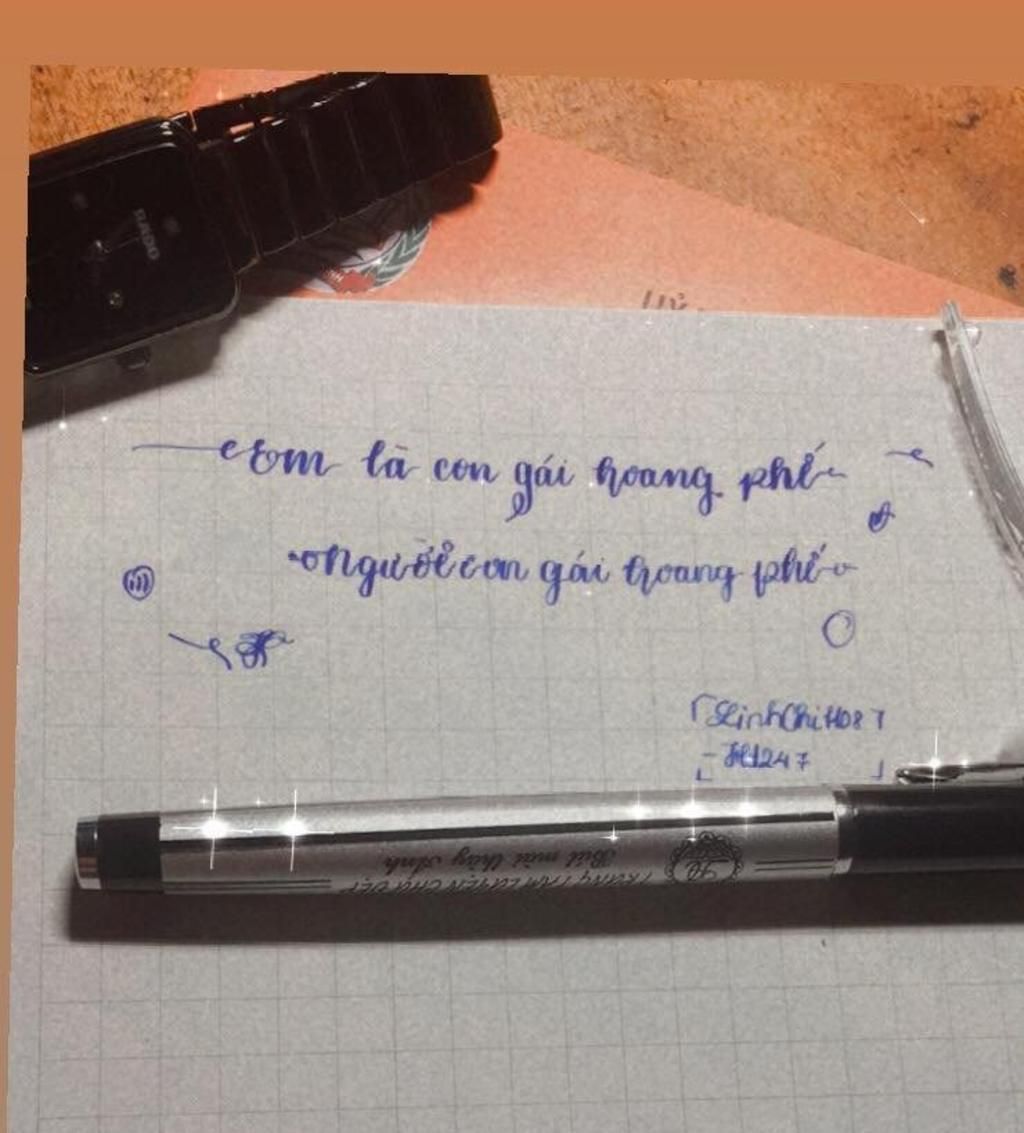 RADO
Em là con gái hoang phế
Người con gái hoang phế
LinhChiH087
-JH1247
Bút mài thầy Ánh
TRUNG TÂM LUYỆN CHỮ ĐẸP